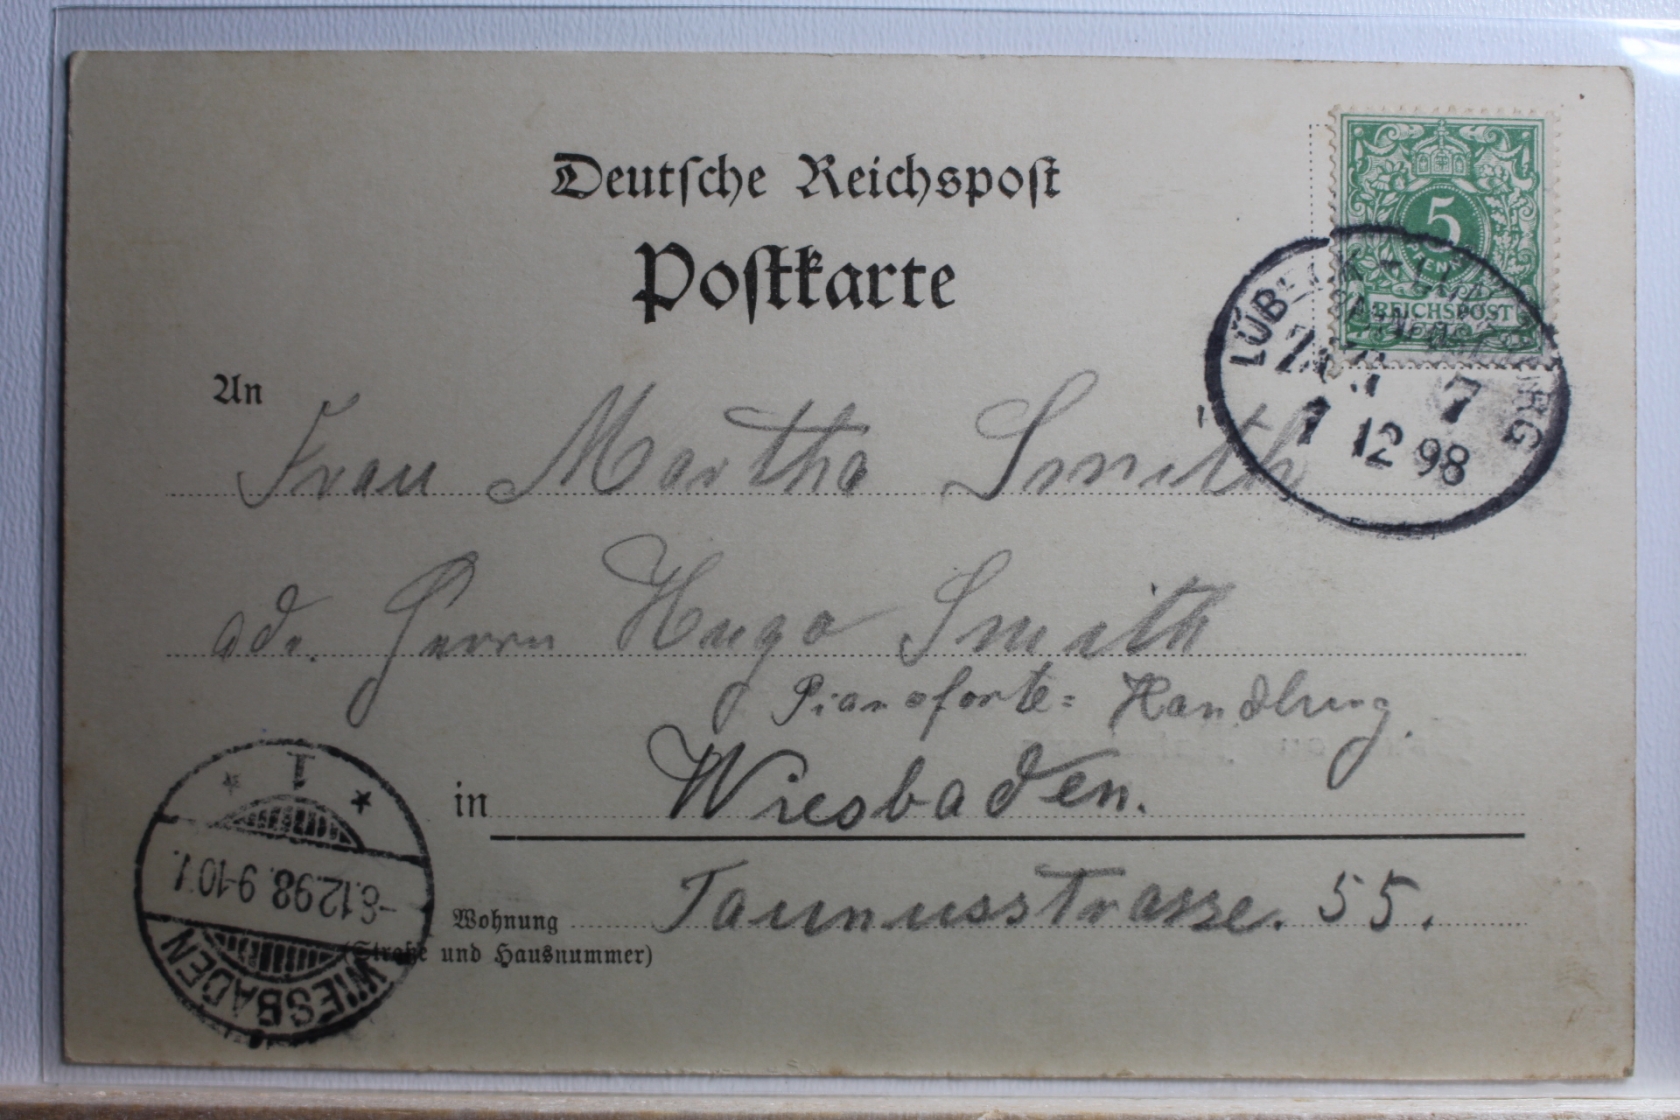 Deutsche Reichspost
Postkarte
5
REICHSPOST
LÜBECK
7
7 12 98
An Frau Martha Smith
adr. Herrn Hugo Smith
Pianoforte= Handlung.
in Wiesbaden.
Wohnung Taunusstrasse. 55.
(Straße und Hausnummer)
* 1 *
-8.12.98. 9-10 V.
WIESBADEN